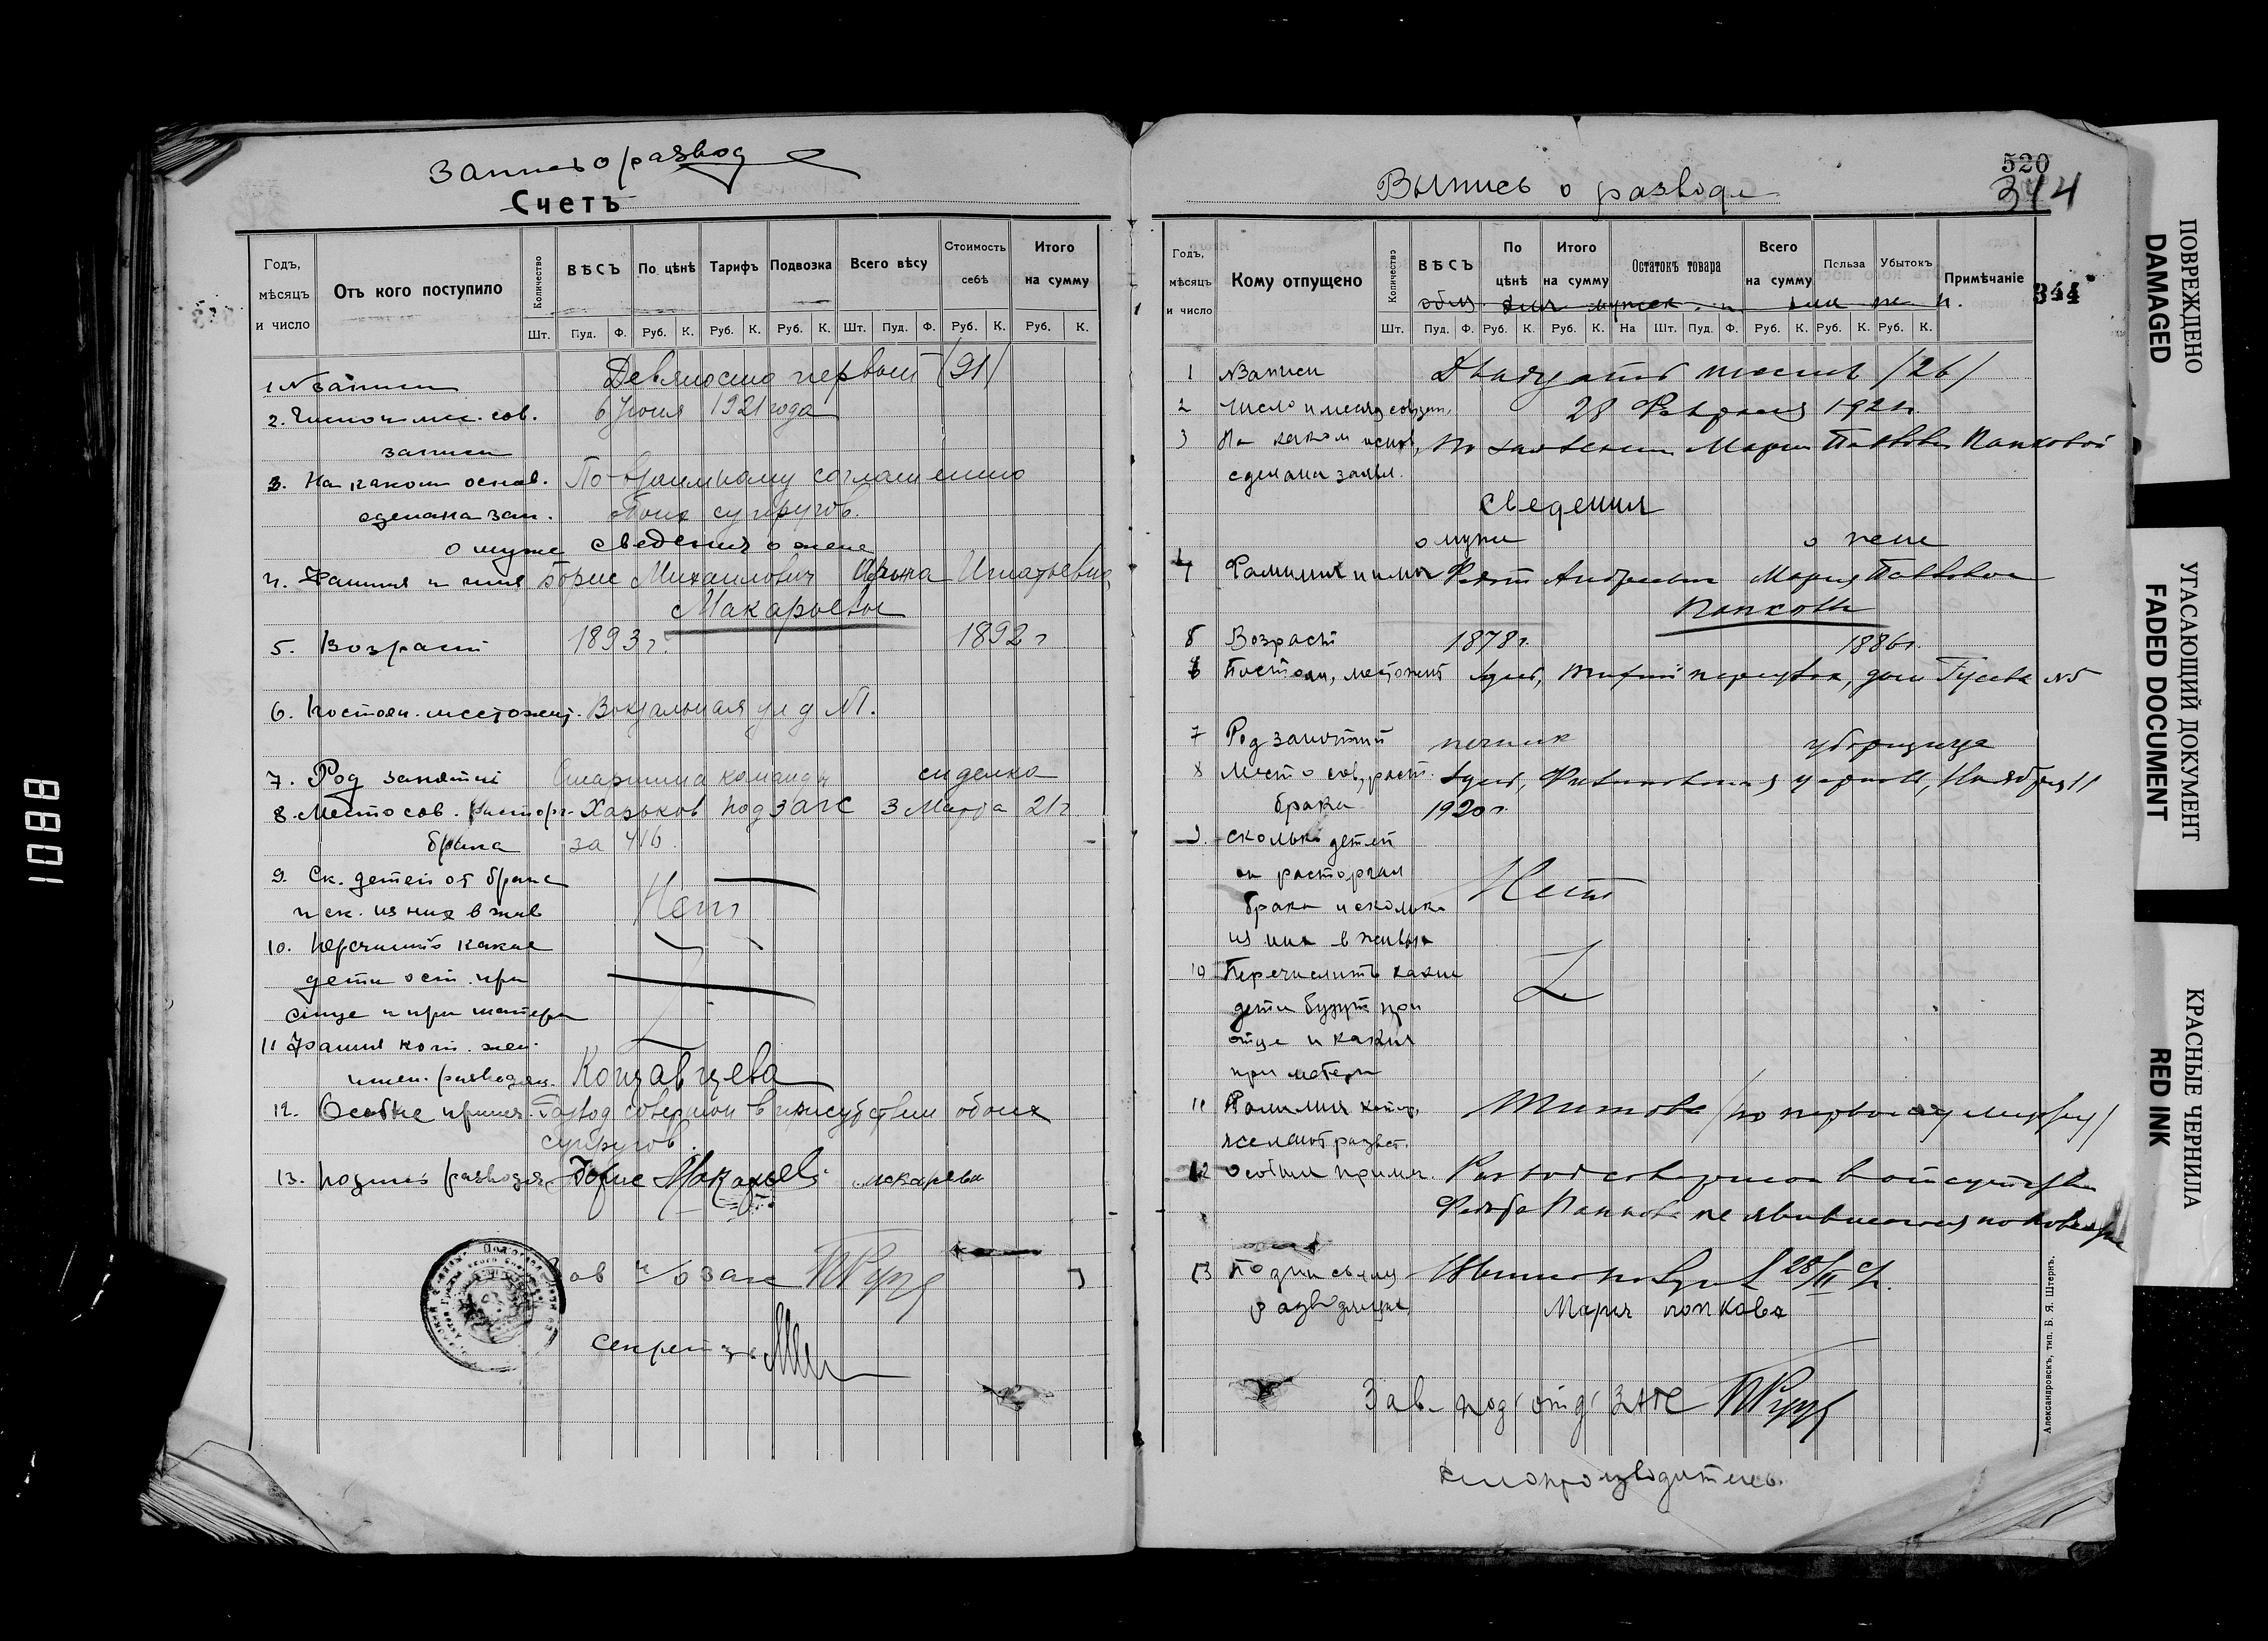 Запись о развод
Счетъ
Годъ, мѣсяцъ и число
Отъ кого поступило
Количество
ВѢСЪ
По цѣнѣ
Тарифъ
Подвозка
Всего вѣсу
Стоимость себѣ
Итого на сумму
Шт. Пуд. Ф. Руб. К. Руб. К. Руб. К. Шт. Пуд. Ф. Руб. К. Руб. К.
1 № записи Девяносто первый (91)
2. Число и мес. сов. 6 Июня 1921 года
записи
3. На каком основ. По взаимному соглашению
сделана зап. обоих супругов.
о муже Сведения о жене
4. Фамилия и имя Борис Михаилович Ирина Игнатьевна
Макарьевы
5. Возраст 1893 г. 1892 г
6. Постоян. местожит. Вокзальная ул д №1.
7. Род занятий Старшина команды сиделка
8. Место сов. расторг. Харьков подзагс 3 Марта 21 г
брака за 416.
9. Ск. детей от брака
и ск. из них в жив Нет
10. Перечислить какие
дети ост. при
отце и при матери
11 Фамил кот. жел.
имен. разведен.
12. Особые примеч. Развод совершен в присутствии обоих
супругов.
13. Подпись разводя Борис Макарьев
Зав п/о загс
Секретарь
Выпись о разводе
520
314
344
Годъ, мѣсяцъ и число
Кому отпущено
Количество
ВѢСЪ
По цѣнѣ
Итого на сумму
Остатокъ товара
Всего на сумму
Польза
Убытокъ
Примѣчаніе
Шт. Пуд. Ф. Руб. К. Руб. К. На Шт. Пуд. Ф. Руб. К. Руб. К. Руб. К.
1 №Записи Двадцать шесть /26/
2 Число и месяц сов. зап. 28 Февраля 1921 г.
3 На каком основ. по заявлению Марии Павловны Папковой
сделана заявл.
Сведения
о муже о жене
4 Фамилия и имя Андреевич Мария Павловна
Папковы
5 Возраст 1878 г. 1886 г.
6 Постоян. местожит дом Гусева №5
7 Род занятий печник уборщица
8 Место сов. раст. Ноября 11
брака 1920 г.
9. Сколько детей
от расторгая
брака и сколько Нет
из них в живых
10 Перечислить какие
дети будут при
отце и какия
при матери
11 Фамилия котор. Титова /по первому мужу/
желают развест.
12 Особыя примеч. Развод совершен в отсутствии
Папкова не явившегося по повестке
13 Подпись лиц 28/II с/г.
разводящих Мария попкова
Зав. под'отд' ЗАГС
Делопроизводитель.
Александровскъ, тип. Б. Я. Штернъ.
ПОВРЕЖДЕНО
DAMAGED
УГАСАЮЩИЙ ДОКУМЕНТ
FADED DOCUMENT
КРАСНЫЕ ЧЕРНИЛА
RED INK
1088